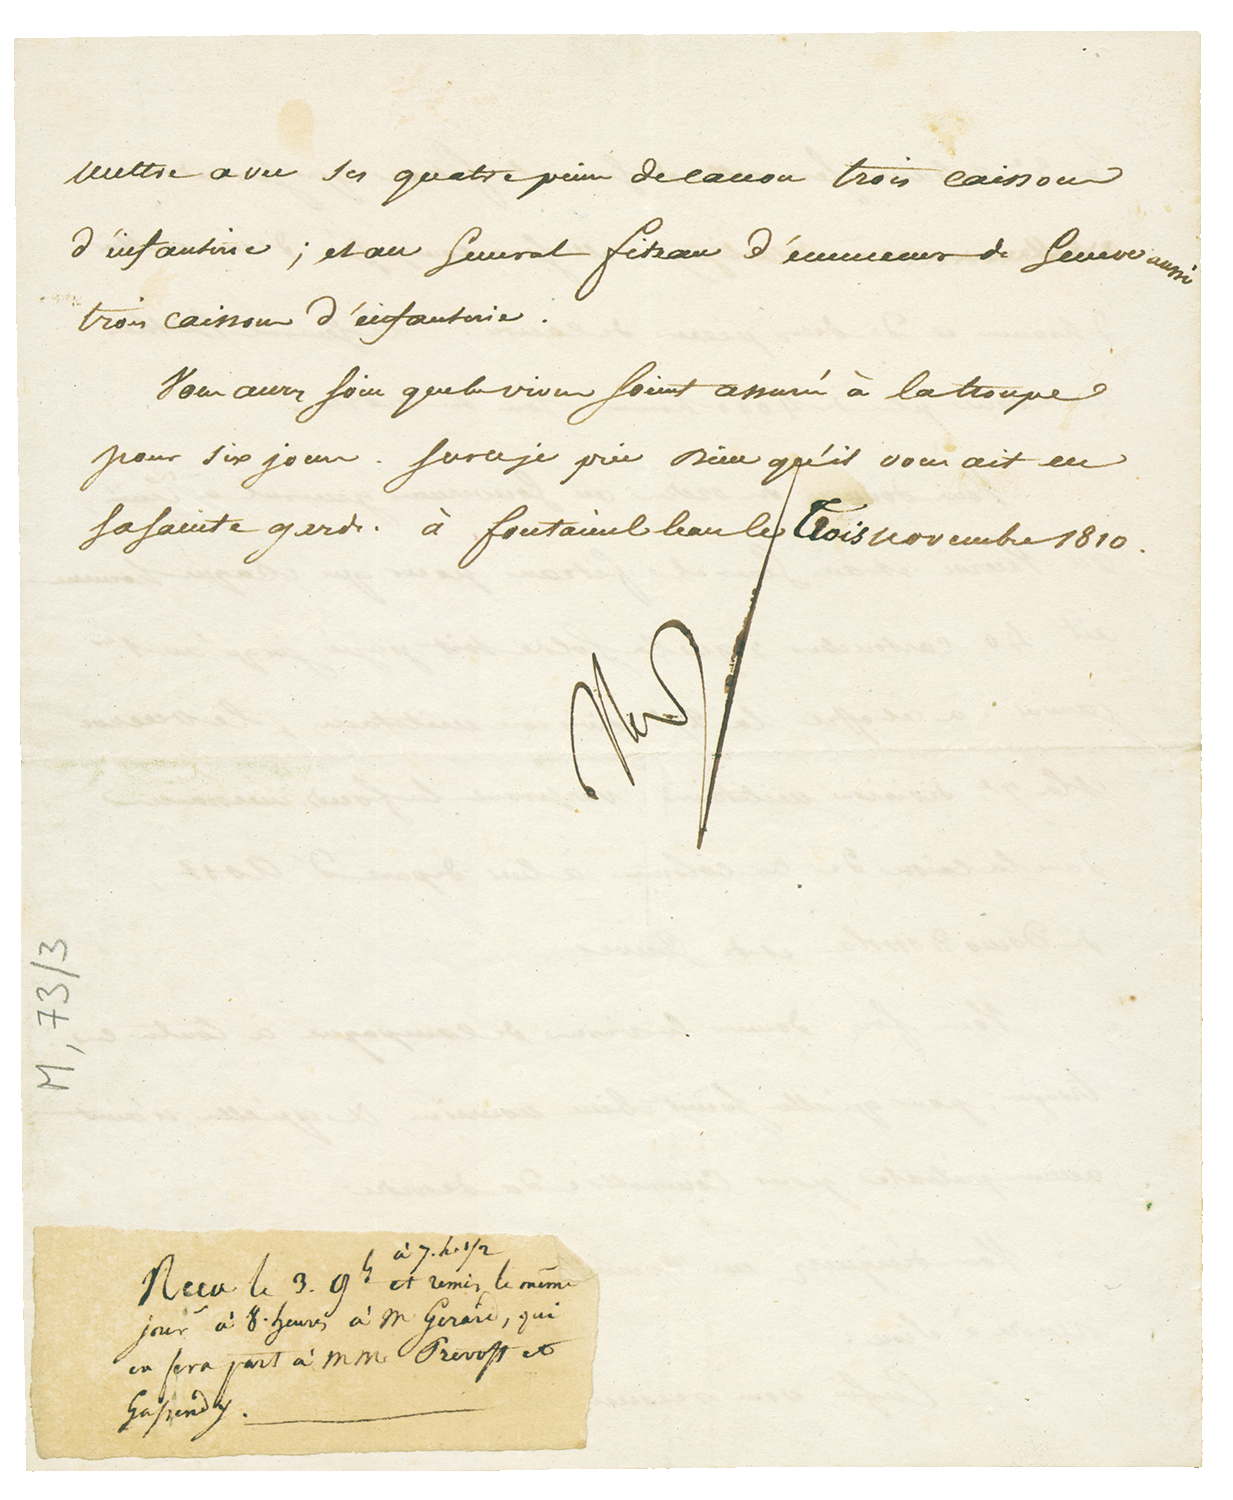 mettre avec ses quatre pièces de canon trois caissons
d'infanterie ; et au Général fiteau d'emmener de Geneve aussi
trois caissons d'infanterie .
Vous aurez soin que les vivres soient assurés à la troupe
pour six jours . Sur ce je prie Dieu qu'il vous ait en
sa sainte garde. à fontainebleau le Trois novembre 1810 .
Np
à 7. h. 1/2
Recu le 3. 9b et remis le même
jour à 8. heures à M Gerard, qui
en fera part à MM. Prevost et
Gassendy.
M, 73/3